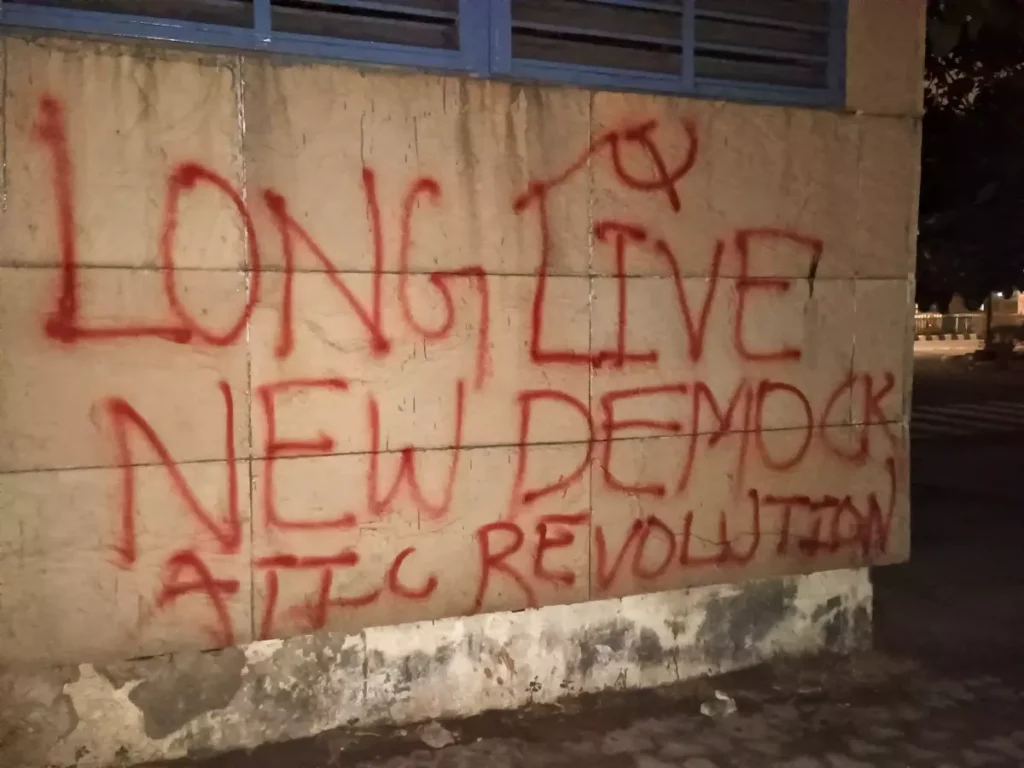 LONG LIVE
NEW DEMOCR
ATIC REVOLUTION